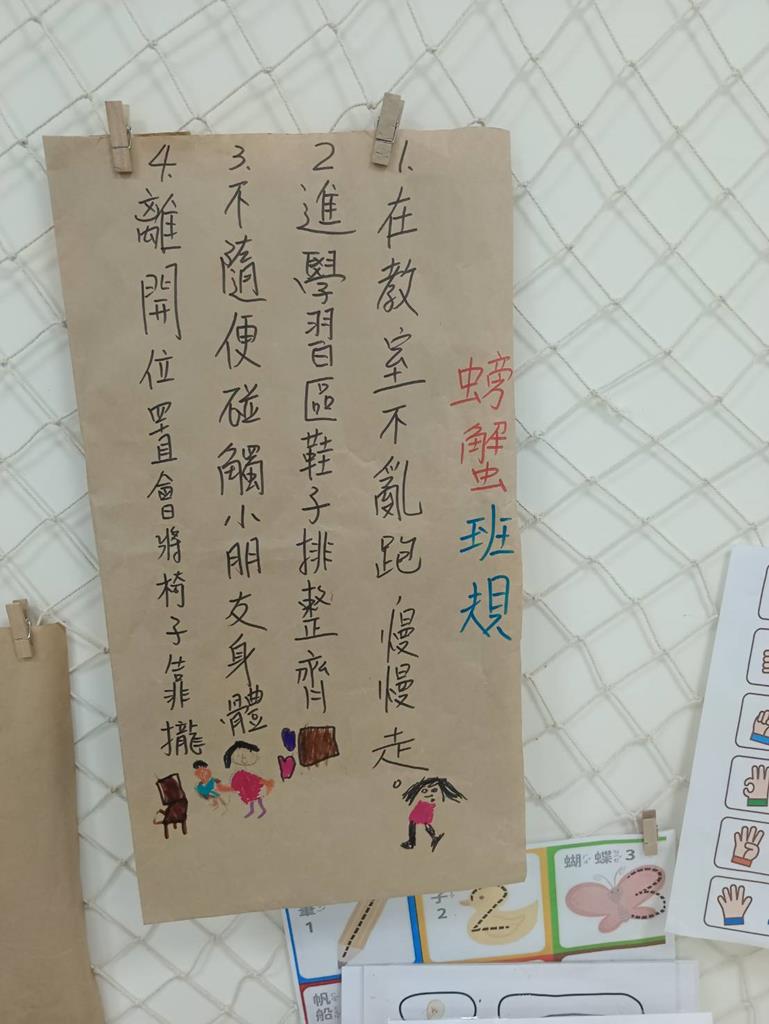 螃蟹班規
1.在教室不亂跑,慢慢走。
2進學習區鞋子排整齊
3.不隨便碰觸小朋友身體
4.離開位置會將椅子靠攏
筆
1
子
2
蝴蝶3
帆船